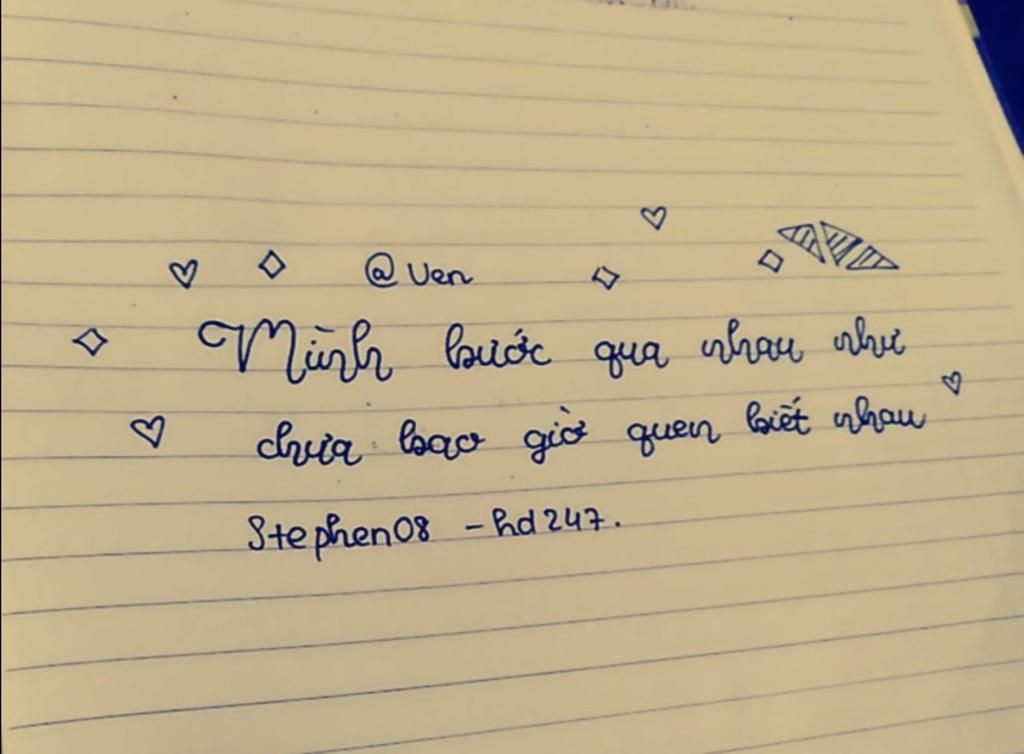 @Ven
Mình bước qua nhau như
chưa bao giờ quen biết nhau
Stephen08 - hd247.